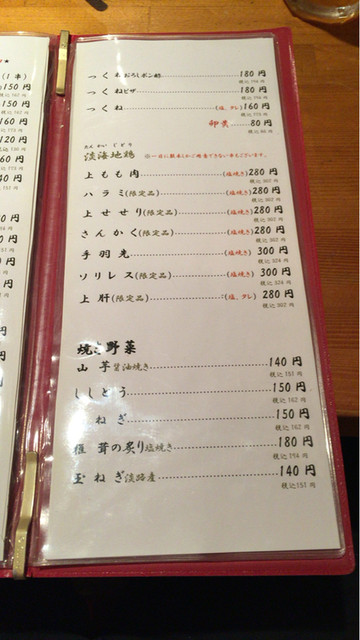 (1串)
150円
税込162円
150円
税込162円
160円
税込173円
120円
160円
税込173円
140円
税込151円
つくねおろしポン酢 180円
税込194円
つくねピザ 180円
税込194円
つくね (塩、タレ)160円
税込173円
卵黄 80円
税込86円
たんかいじどり
淡海地鶏
上もも肉 (塩焼き)280円
税込302円
ハラミ(限定品) (塩焼き)280円
税込302円
上せせり(限定品) (塩焼き)280円
税込302円
さんかく(限定品) (塩焼き)280円
税込302円
手羽先 (塩焼き) 300円
税込324円
ソリレス(限定品) (塩焼き) 300円
税込324円
上肝(限定品) (塩、タレ) 280円
税込302円
焼き野菜
山芋醤油焼き 140円
税込151円
ししとう 150円
税込162円
ねぎ 150円
税込162円
椎茸の炙り塩焼き 180円
税込194円
玉ねぎ淡路産 140円
税込151円